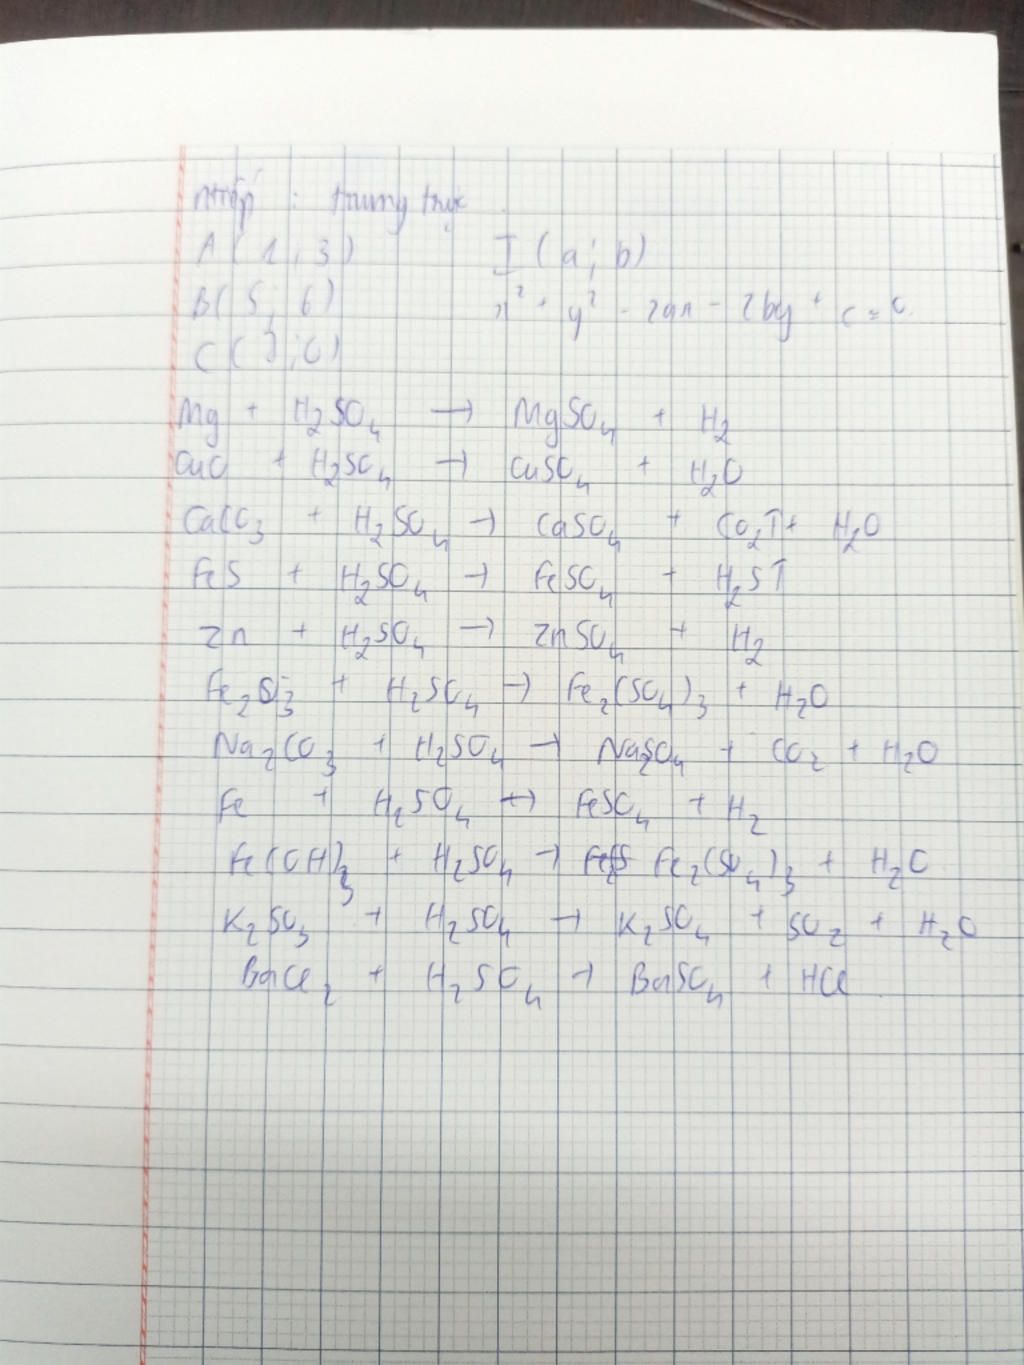 : trung trực
A ( 1 ; 3 ) I ( a ; b )
B( 5 ; 6 ) x² + y² - 2ax - 2by + c = 0
C ( ; 0 )
Mg + H₂SO₄ → MgSO₄ + H₂
CuO + H₂SO₄ → CuSO₄ + H₂O
CaCO₃ + H₂SO₄ → CaSO₄ + CO₂↑ + H₂O
FeS + H₂SO₄ → FeSO₄ + H₂S↑
Zn + H₂SO₄ → ZnSO₄ + H₂
Fe₂O₃ + H₂SO₄ → Fe₂(SO₄)₃ + H₂O
Na₂CO₃ + H₂SO₄ → Na₂SO₄ + CO₂ + H₂O
Fe + H₂SO₄ → FeSO₄ + H₂
Fe(OH)₃ + H₂SO₄ → Fe₂(SO₄)₃ + H₂O
K₂SO₃ + H₂SO₄ → K₂SO₄ + SO₂ + H₂O
BaCl₂ + H₂SO₄ → BaSO₄ + HCl